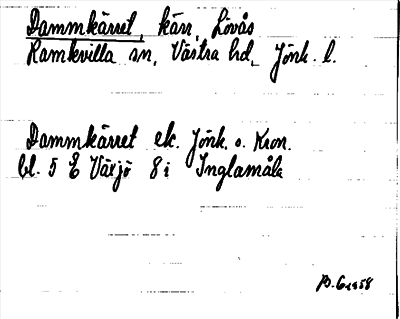 Dammkärret, kärr, Lövås
Ramkvilla sn, Västra hd, Jönk. l.
Dammkärret ek. Jönk. o. Kron.
bl. 5 E Växjö 8 i Inglamåla
1958